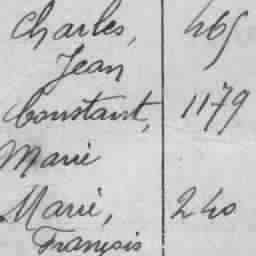 Charles, 465
Jean
Constant, 1179
Marie
Marie, 240
François